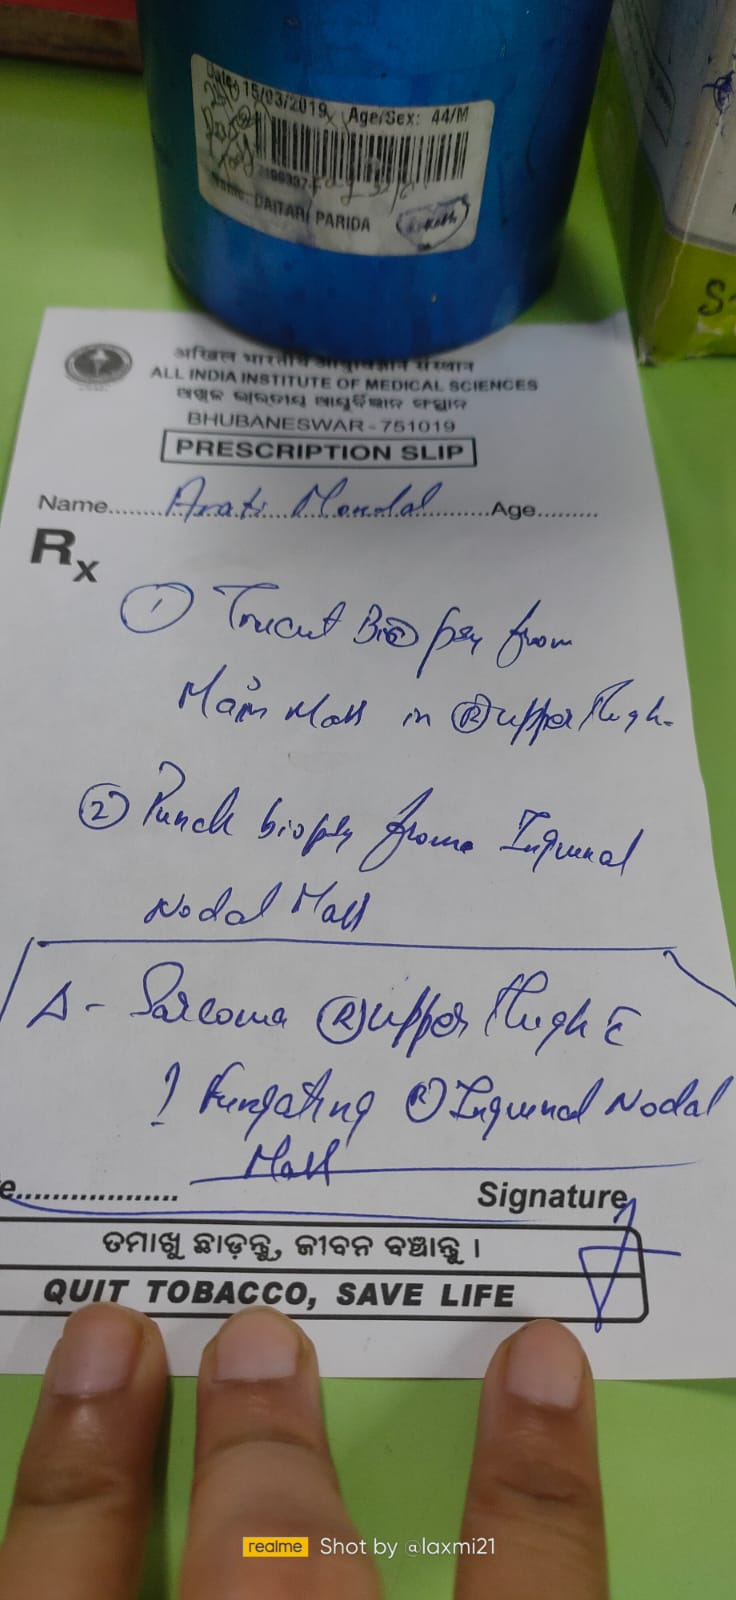 Date: 15/03/2019 Age/Sex: 44/M
Name: DAITARI PARIDA
अखिल भारतीय आयुर्विज्ञान संस्थान
ALL INDIA INSTITUTE OF MEDICAL SCIENCES
BHUBANESWAR - 751019
PRESCRIPTION SLIP
Name........Arati Mondal........Age.........
Rx
① Trucut Biopsy from
Main Mass in Ⓡ upper thigh.
② Punch biopsy from Inguinal
Nodal Mass
Δ - Sarcoma Ⓡ upper thigh c̄
? Fungating Ⓡ Inguinal Nodal
Mass
Signature
ତମାଖୁ ଛାଡ଼ନ୍ତୁ, ଜୀବନ ବଞ୍ଚାନ୍ତୁ ।
QUIT TOBACCO, SAVE LIFE
realme Shot by @laxmi21